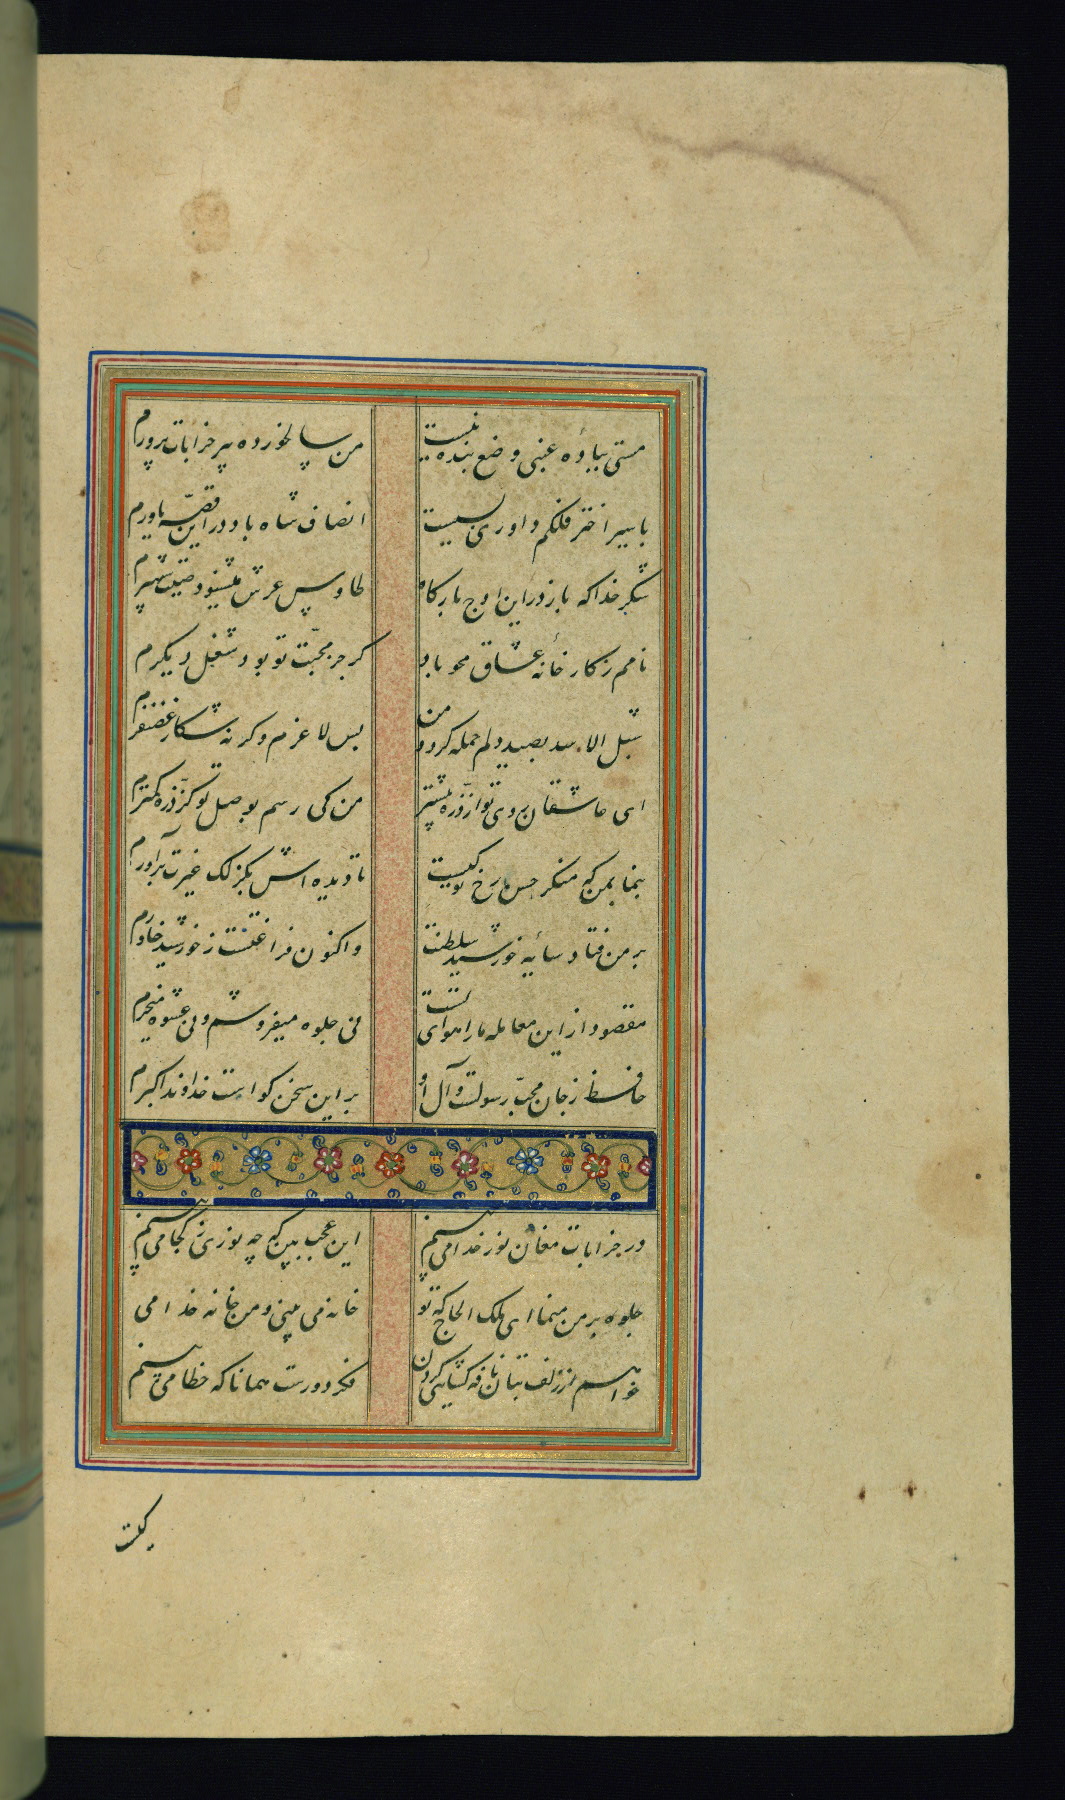 مستی بباده عنبی وضع بنده نیست من سالخورده پیر خرابات پرورم
با سیر اختر فلکم داوری بسیست انصاف شاه باد در این قصّه یاورم
شکر خدا که باز در این اوج بارکاه طاوس عرش میشنود صیت شهپرم
نامم ز کارخانهٔ عشاق محو باد کر جز محبّت تو بود شغل دیکرم
شبل الاسد بصید دلم حمله کرد و من بس لاغرم وکرنه شکار غضنفرم
ای عاشقان روی تو از ذرّه بیشتر من کی رسم بوصل تو کز ذرّه کمترم
بنما بمن که منکر حسن رخ تو کیست تا دیده اش بکزلک غیرت برآورم
بر من فتاد سایهٔ خورشید سلطنت واکنون فراغتست ز خورشید خاورم
مقصود از این معامله مارا هوای تست نی جلوه میفروشم و نی عشوه میخرم
حافظ ز جان محبّ رسولست و آل او بر این سخن کواست خداوند اکبرم
در خرابات مغان نور خدا می بینم این عجب بین که چه نوری ز کجا می بینم
جلوه بر من منما ای ملک الحاج که تو خانه می بینی و من خانه خدا می
خواهم از زلف بتان نافه کشایی کردن فکر دورست همانا که خطا می بینم